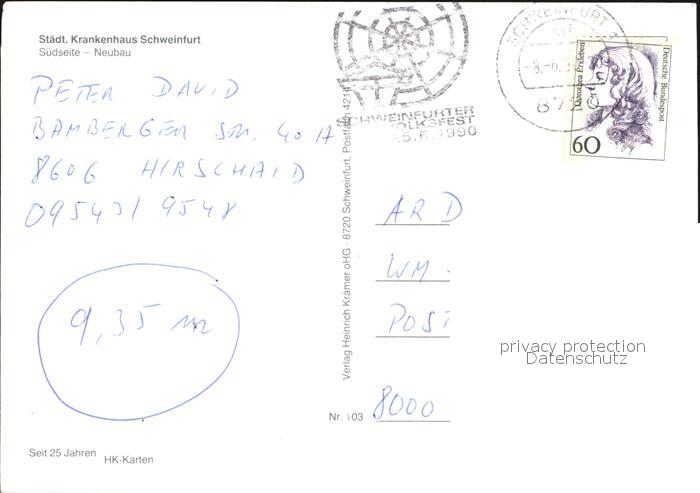 Städt. Krankenhaus Schweinfurt
Südseite – Neubau
PETER DAVID
BAMBERGER STR. 40 A
8606 HIRSCHAID
09543/ 9548
9,35 m
Seit 25 Jahren
HK-Karten
Verlag Heinrich Krämer oHG · 8720 Schweinfurt, Postfach 421
Nr. 103
SCHWEINFURTER
VOLKSFEST
25.6.1990
SCHWEINFURT 1
-8.-6.
872
Dorothea Erxleben
Deutsche Bundespost
60
ARD
WM.
POST
8000
privacy protection
Datenschutz